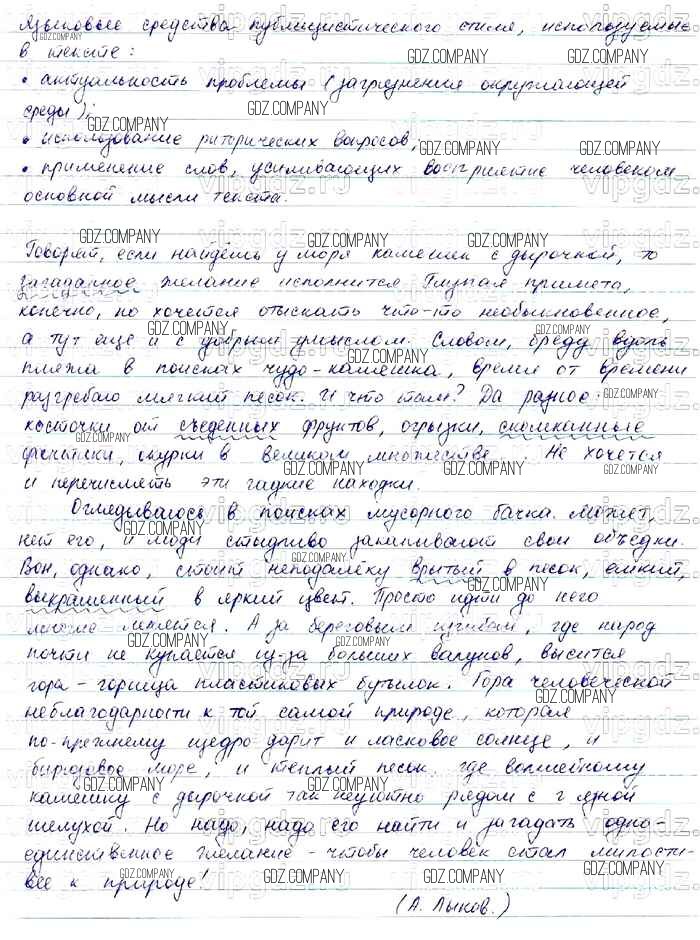 Языковые средства публицистического стиля, используемые
в тексте:
• актуальность проблемы (загрязнения окружающей
среды);
• использование риторических вопросов;
• применение слов, усиливающих восприятие человеком
основной мысли текста.
Говорят, если найдёшь у моря камешек с дырочкой, то
загаданное желание исполнится. Глупая примета,
конечно, но хочется отыскать что-то необыкновенное,
а тут еще и с добрым умыслом. Словом, бреду вдоль
пляжа в поисках чудо-камешка, время от времени
разгребаю мягкий песок. И что там? Да разное:
косточки от съеденных фруктов, огрызки, скомканные
фантики, окурки в великом множестве. Не хочется
и перечислять эти гадкие находки.
Оглядываюсь в поисках мусорного бачка. Может,
нет его, и люди стыдливо закапывают свои объедки.
Вон, однако, стоит неподалёку врытый в песок, емкий,
выкрашенный в яркий цвет. Просто идти до него
многие ленятся. А за береговым изгибом, где народ
почти не купается из-за больших валунов, высится
гора-горища пластиковых бутылок. Гора человеческой
неблагодарности к той самой природе, которая
по-прежнему щедро дарит и ласковое солнце, и
бирюзовое море, и теплый песок, где волшебному
камешку с дырочкой так неуютно рядом с грязной
шелухой. Но надо, надо его найти и загадать одно-
единственное желание - чтобы человек стал милости-
вее к природе!
(А. Лыков.)
GDZ.COMPANY
vipgdz.ru